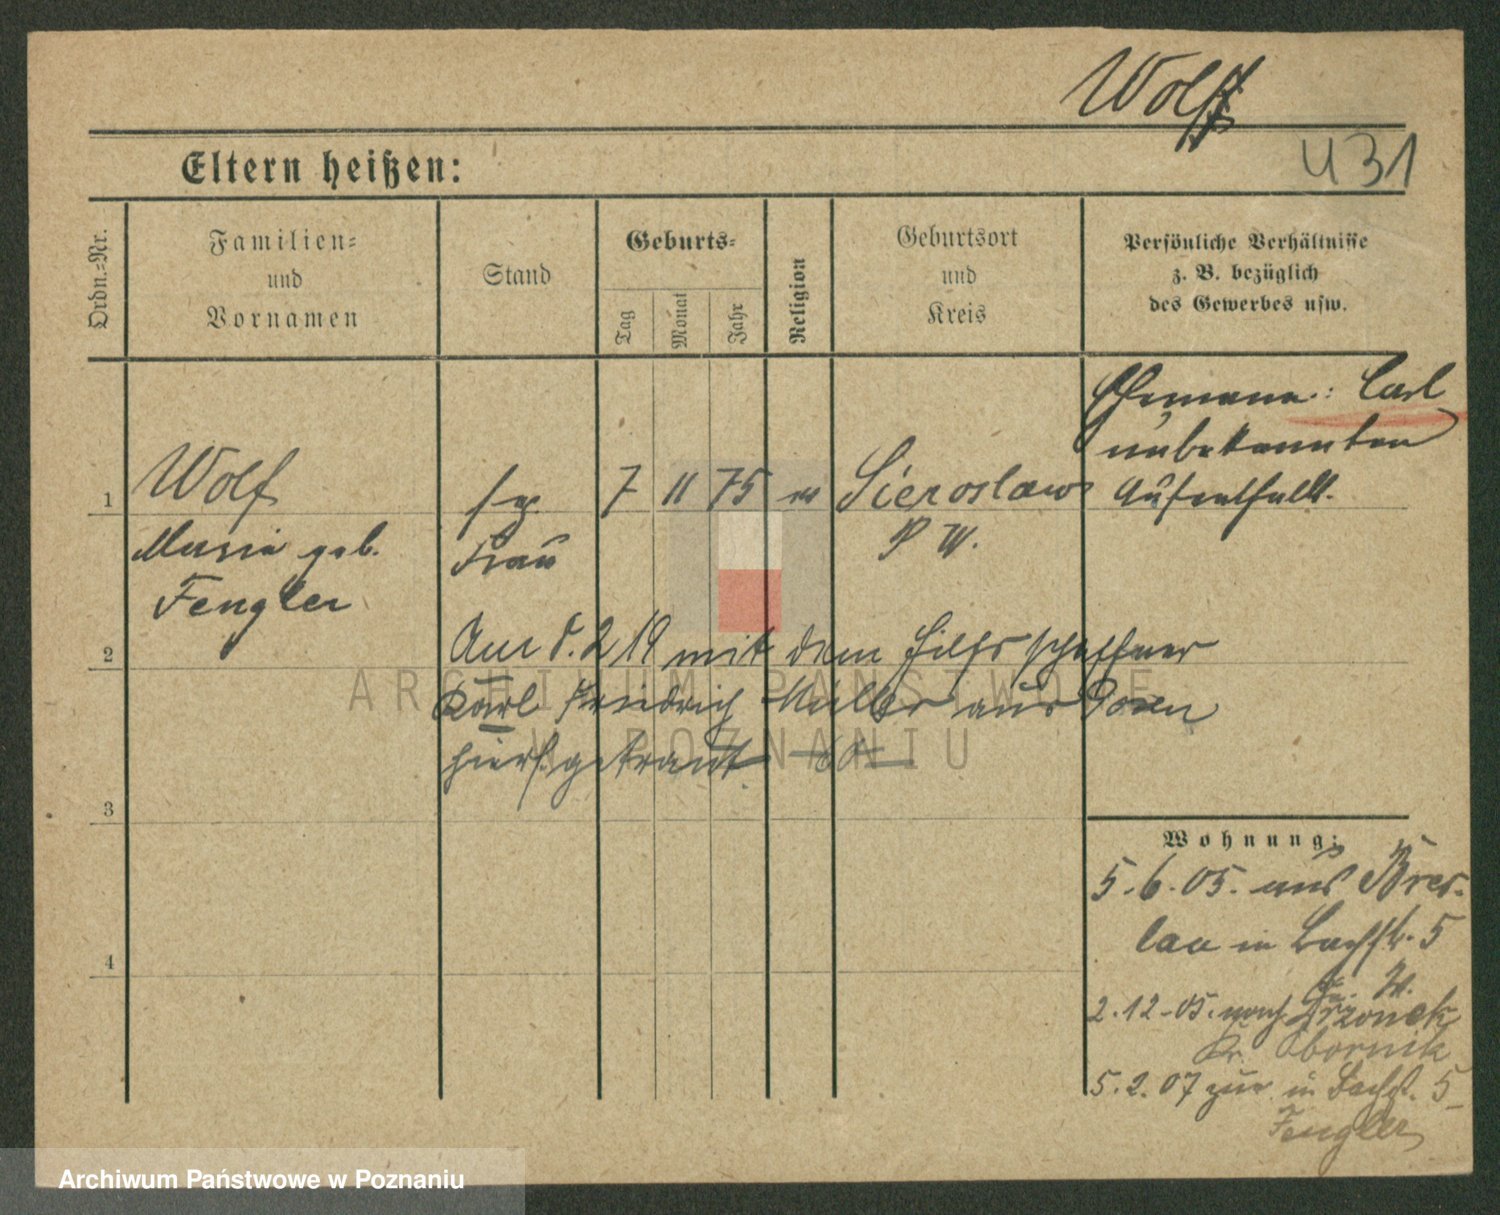 Wolff
431
Eltern heißen:
Ordn.-Nr.
Familien-
und
Vornamen
Stand
Geburts-
Tag
Monat
Jahr
Religion
Geburtsort
und
Kreis
Persönliche Verhältnisse
z. B. bezüglich
des Gewerbes usw.
Ehemann: Carl
unbekannten
Aufenthalts.
1
Wolf
7 11 75
Sieroslaw
Marie geb.
Frau
P. W.
Fengler
2
Am 8. 2 19 mit dem Hilfsschaffner
Karl Friedrich Müller aus Posen
hiers. getraut
3
Wohnung:
5. 6. 05. aus Bres-
lau in Bachstr. 5
4
2. 12. 05. nach
Kr. Obornik
5. 2. 07 zur. in Bachst. 5
Fengler
ARCHIWUM PAŃSTWOWE
W POZNANIU
Archiwum Państwowe w Poznaniu